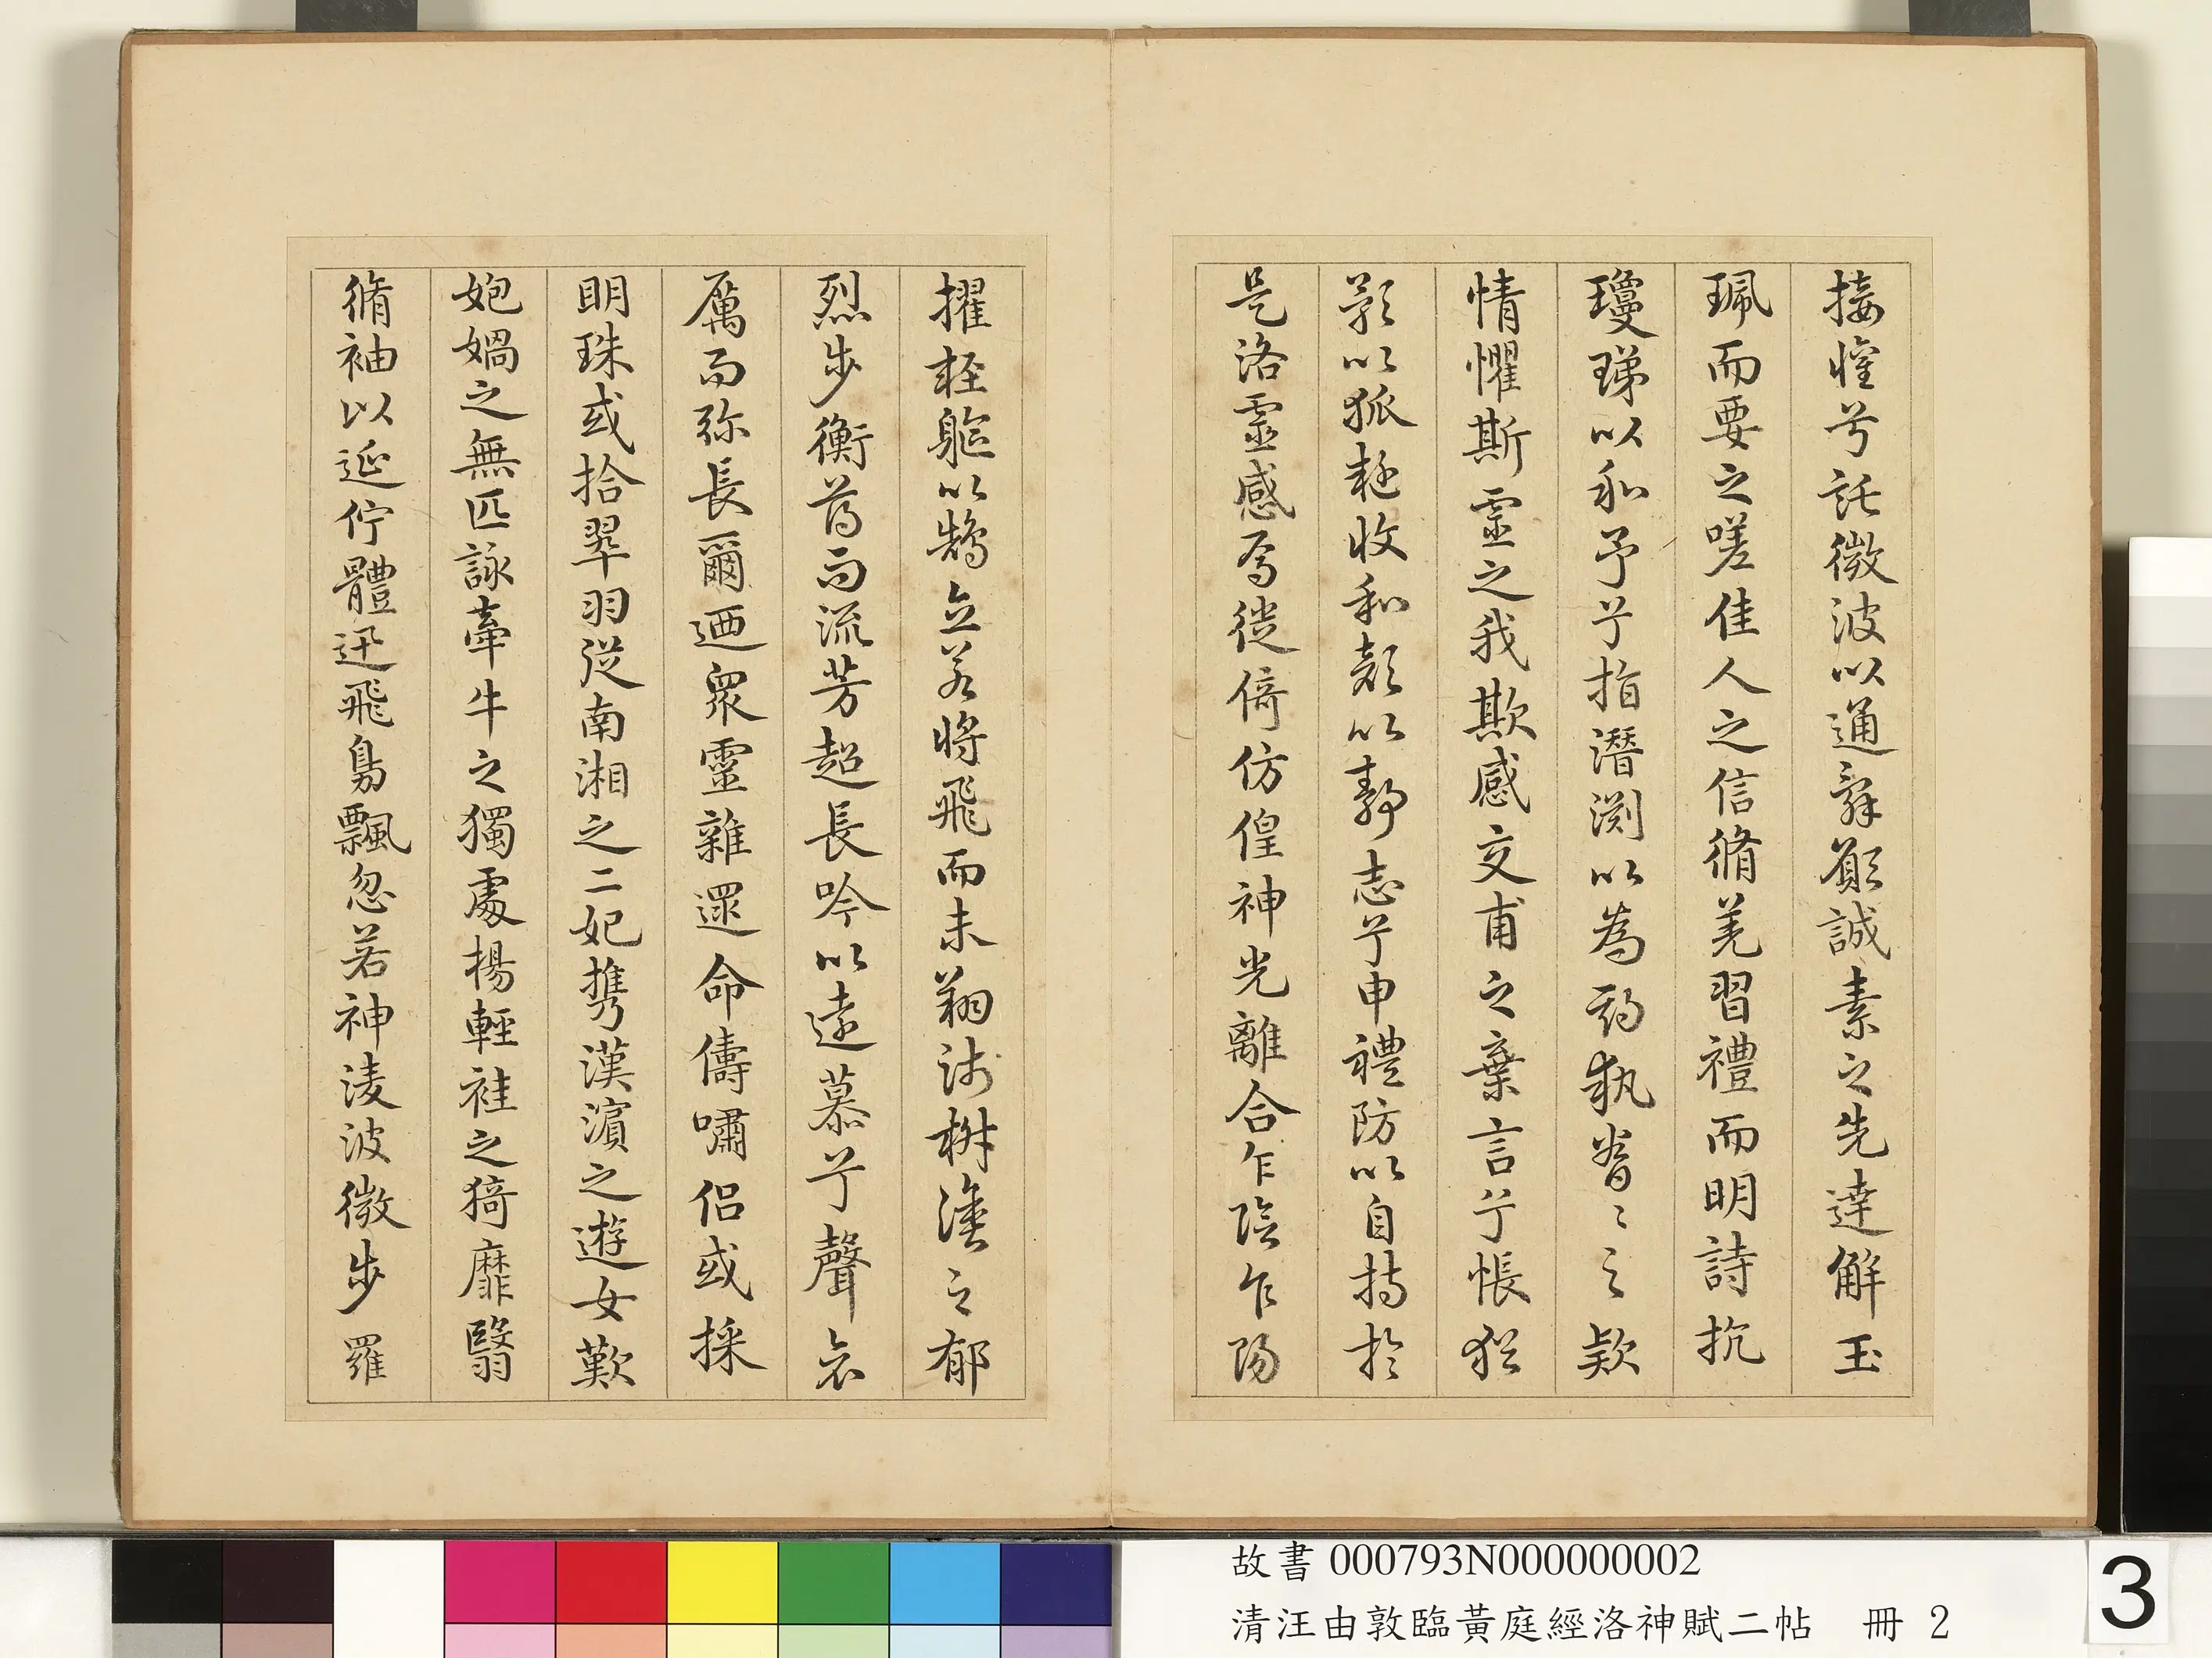 接懽兮託微波以通辭願誠素之先達解玉
珮而要之嗟佳人之信脩羌習禮而明詩抗
瓊珶以和予兮指潛淵以為期執眷〻之款
情懼斯靈之我欺感交甫之棄言兮悵猶
豫以狐疑收和顏以靜志兮申禮防以自持於
是洛靈感焉徙倚仿偟神光離合乍陰乍陽
擢輕軀以鶴立若將飛而未翔踐椒塗之郁
烈步衡薄而流芳超長吟以遠慕兮聲哀
厲而弥長爾迺衆靈雜遝命儔嘯侶或採
明珠或拾翠羽從南湘之二妃携漢濱之遊女歎
匏媧之無匹詠牽牛之獨處揚輕袿之猗靡翳
脩袖以延佇體迅飛鳧飄忽若神淩波微步羅
故書 000793N000000002
清汪由敦臨黃庭經洛神賦二帖 冊 2
3